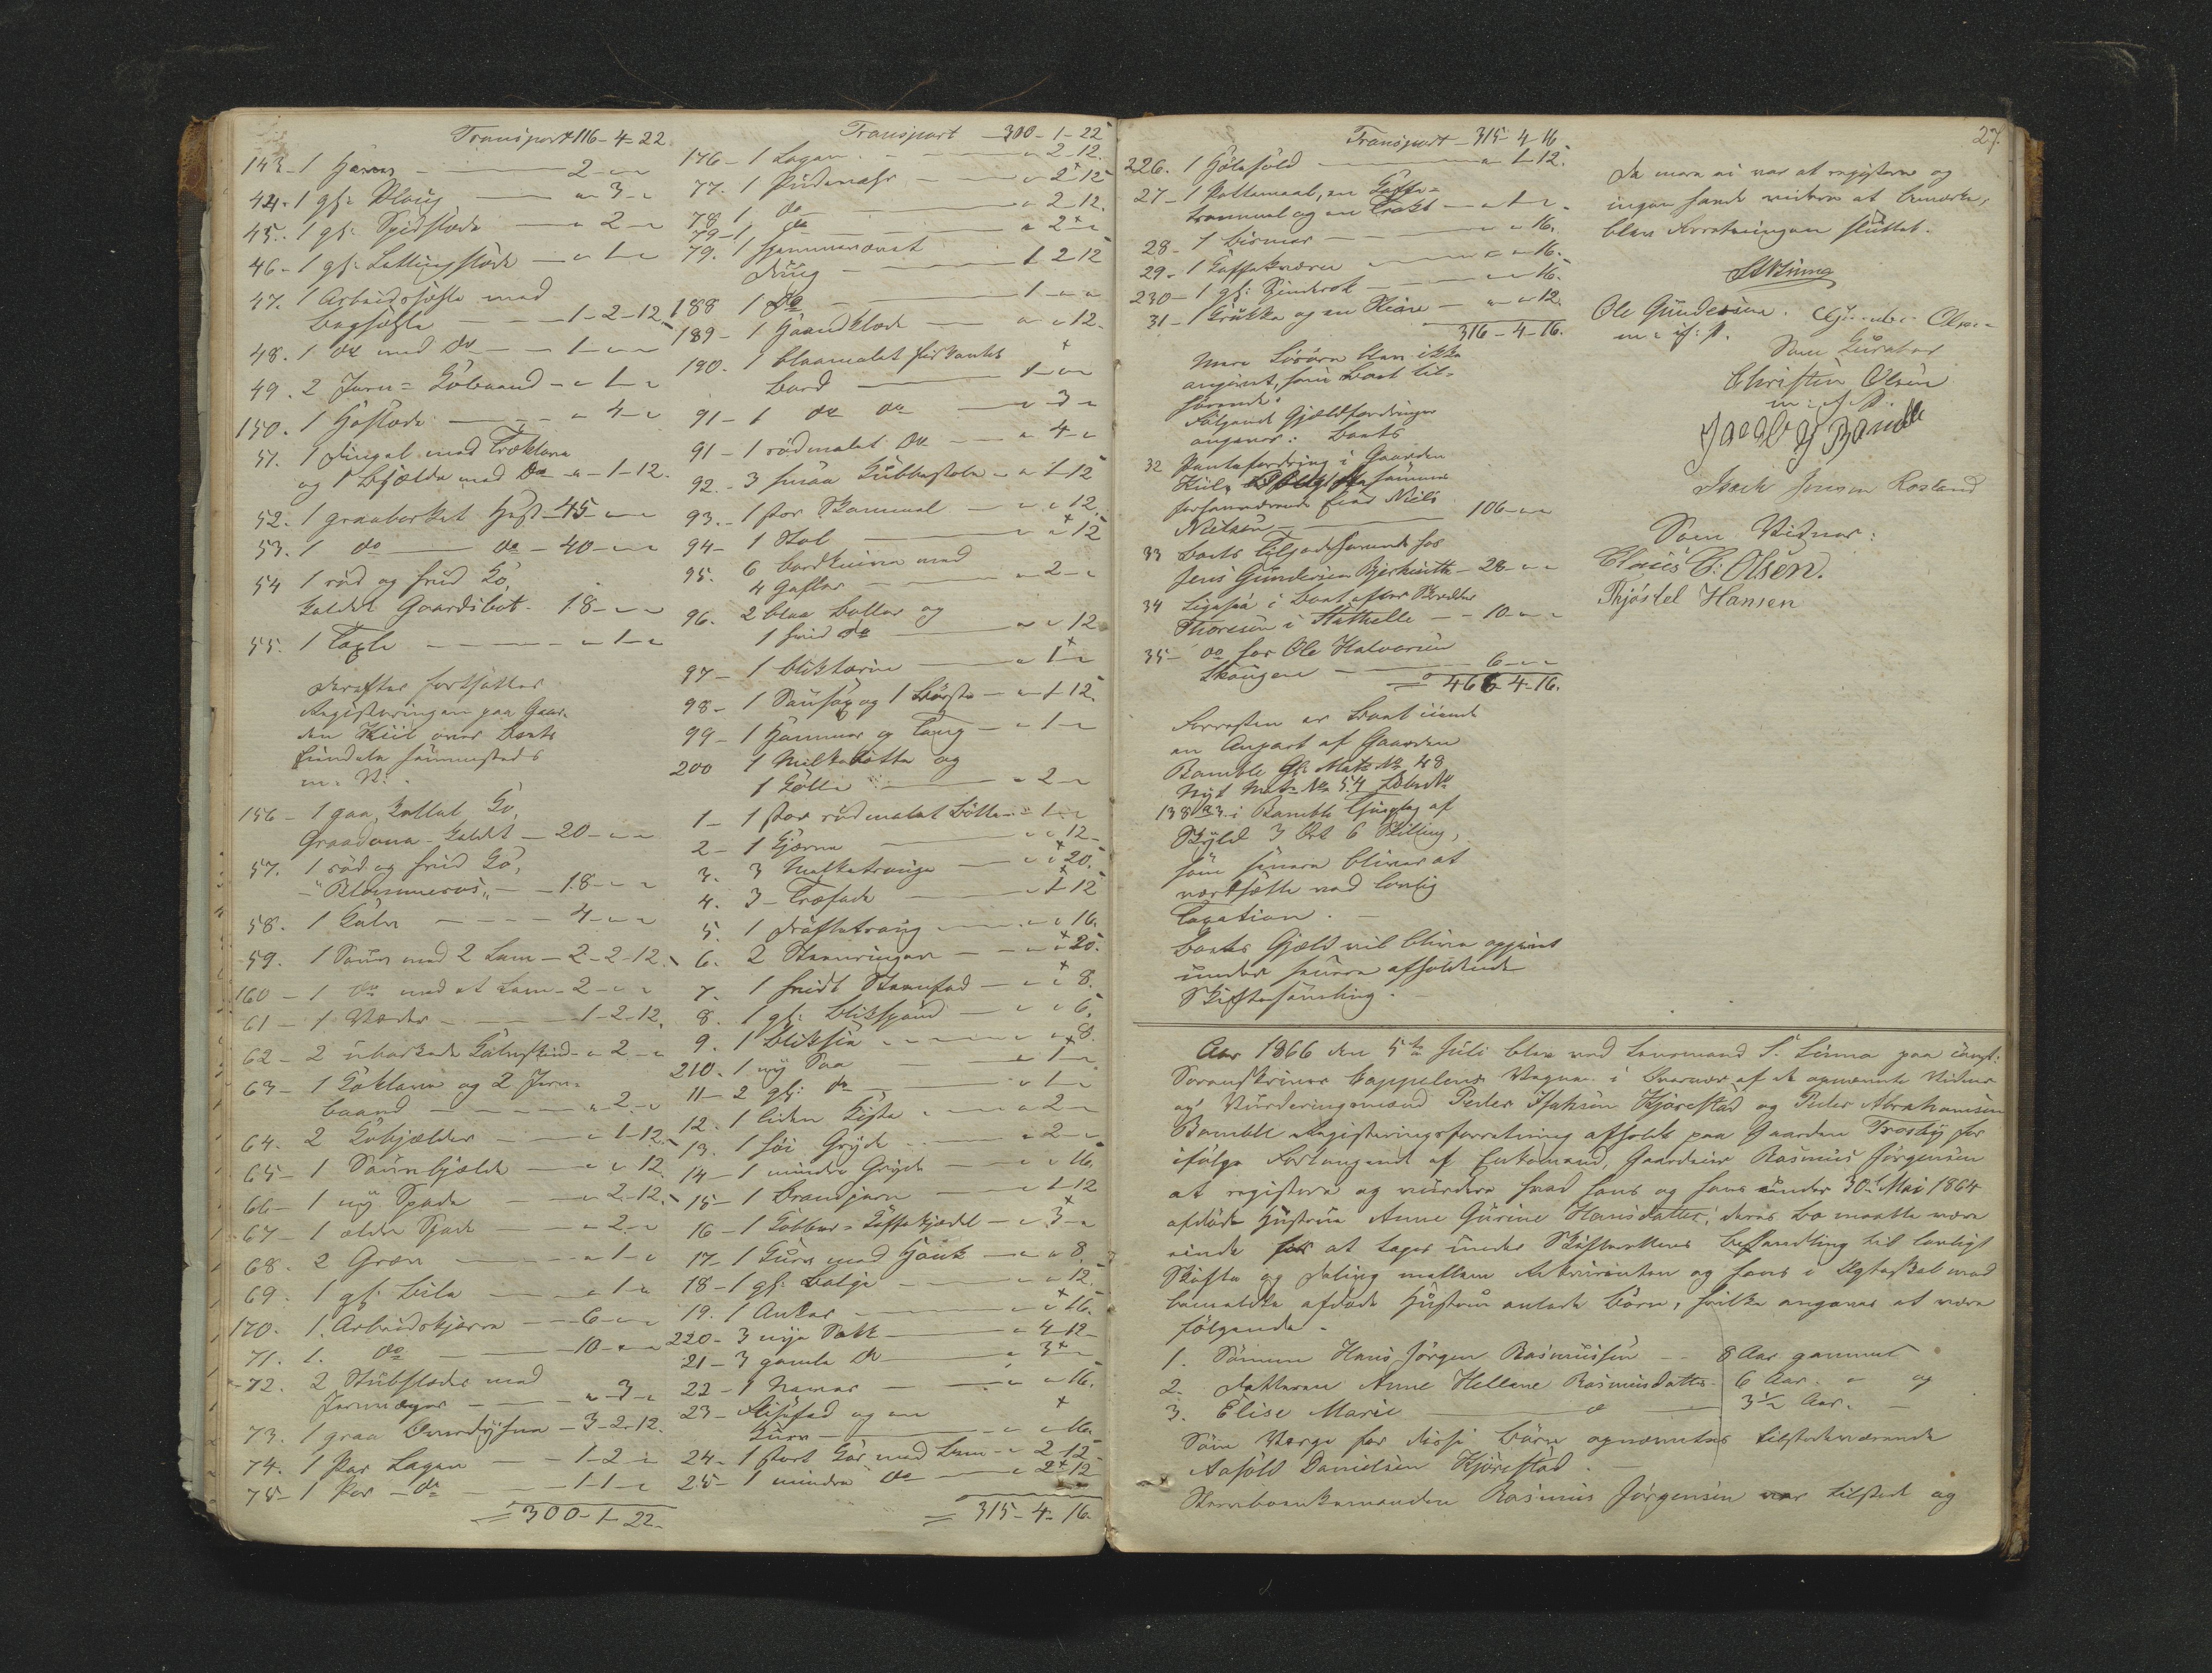 Transport 116-4-22
143-1 Harv - 2 - -
44-1 gl: Ploug - 3 -
45-1 gl: Spidslæde - 2 -
46-1 gl: Lettingslæde - 1 -
47. 1 Arbeidssæle med
Bagsæle - 1-2-12
48. 1 do med do - 1 - -
49. 2 Jern= Kobaand - 1 -
150. 1 Høslæde - 4 -
51. 1 Pingel med Træklave
og 1 Bjælde med do - 1-12.
52. 1 graaborket Hest - 45 - -
53. 1 do - do - 40 - -
54 1 rød og hvid Ko,
kaldet Gaardsbot - 18 - -
55. 1 Taxle - 1 -
Derefter fortsattes
Registreringen paa Gaar-
den Kiil over Boets
Eiendele sammesteds
m. V:
156 - 1 graa, kollet Ko,
Graadona kaldt - 20 - -
57. 1 rød og hvid Ko,
"Blommeros" - 18 - -
58. 1 Kalv - 4 - -
59. 1 Sau med 2 Lam - 2-2-12.
160 - 1 do med et Lam - 2 - -
61 - 1 Væder - 1-2-12.
62 - 2 ubarkede Kalveskind - 2 -
63 - 1 Koklave og 2 Jern-
baand - 2 -
64. 2 Kobjælder - 1-12
65 - 1 Saubjælde - 12
66 - 1 ny Spade - 2-12
67 - 1 ældre Spade - 2 -
68. 2 Græv - 1 -
69. 1 gl: Bile - 1 -
170. 1. Arbeidskjærre - 6 - -
71. 1. do - 10 - -
72. 2 Stubslæder med
Jernmeyer - 3 -
73. 1 graa Overdyne - 3-2-12.
74. 1 Par Lagen - 1-2 -
75 - 1 Par do - 1-1 -
= 300-1-22.
Transport - 300-1-22
176 - 1 Lagen - 2-12.
77. 1 Pudevaar - 2-12
78 1 do - 2-12.
79 - 1 do - 2 -
79. 1 hjemmevævet
Dug - 1 2 12
188 1 do - 1 - -
189 - 1 Haandklæde - 12.
190. 1 blaamalet firkantet
Bord - 1 - -
91 - 1 do do - 3 -
91 - 1 rødmalet do - 4 -
92. - 3 smaa Kubbestole - 1-12
93. - 1 stor Skammel - 12.
94 - 1 Stol - 12
95. 6 Bordknive med
4 Gafler - 2 -
96. 2 blaa Boller og
1 hvid do - 12
97 - 1 Bliktarin - 1 -
98 - 1 Sausax og 1 Børste - 1-12.
99 - 1 Hammer og Tang - 1 -
200 1 Melkebøtte og
1 Kolle - 2 -
1 - 1 stor rødmalet Bøtte - 1 -
2 - 1 Kjærne - 12 -
3. 3 Melketrauge - 20.
4. 3 - Træfade - 1-12
5. 1 Drøftetraug - 16.
6. 2 Steenringer - 20.
7. 1 hvidt Steenfad - 8.
8. 1 gl: Blikspand - 6.
9. 1 Bliksie - 8.
210. 1 ny Saa - 1 -
11 - 2 gl: do - 1 -
12. 1 liden Kiste - 2 -
13. 1 høi Gryde - 2 -
14 - 1 mindre Gryde - 16.
15 - 1 Brandjern - 1-12
16 - 1 Kobber= Kaffekjædel - 3 -
17 - 1 Kurv med Hank - 8.
18 - 1 gl. Balje - 12.
19. 1 Anker - 16.
220 - 3 nye Sække - 4-12 -
21 - 3 gamle do - 3 -
22 - 1 Navar - 16.
23 - Flisefad og en
Kurv - 16.
24 - 1 stort Kar med Laag - 2-12 -
25 - 1 mindre do - 2-12
= 315-4-16.
27.
Transport - 315-4-16
226. 1 Høleføld - 1-12.
27 - 1 Pottemaal, en Kaffe=
brænder og en Trakt - 1 -
28 - 1 Bismer - 16.
29 - 1 Kaffekværn - 16.
230 - 1 gl: Spinderok - 16.
31 - 1 Krukke og en Skaar - 12.
316-4-16.
Mere Løsøre blev ikke
angivet, som Boet til-
hørende.
Følgende Gjældsfordringer
angaves: Boets
32 Pantefordring i Gaarden
Kiil, sammes
forhenværende Eier Niels
Nielsen - 106 - -
33 Boets Tilgodehavende hos
Jens Gundersen Bjerkseth - 28 - -
34 Ligesaa i Boet efter Skredder
Thoresen i Stathelle - 10 - -
35 - do hos Ole Halvorsen
Skougen - 6 - -
= 466-4-16.
Forresten er Boet eiende
en Anpart af Gaarden
Bamble Gl: Matr. No 48
Nyt Matr. No 54 Løbe No
138 a 3 i Bamble Thinglag af
Skyld 3 Ort 6 Skilling,
som senere bliver at
værdsætte ved lovlig
Taxation. -
Boets Gjæld vil blive opgivet
under senere afholdende
Skiftesamling. -
Da mere ei var at registrere og
ingen havde videre at bemærke,
blev Forretningen sluttet.
Ole Gundersen. Gunder Olsen
m: if: P. Som Kurator
Christen Olsen
m: if: P.
Jacob J Bamble
Isach Jensen Rosland
Som Vidner:
Claus C: Olsen.
Thjøstel Hansen
Aar 1866 den 5te Juli blev ved Lensmand S. Linna paa const:
Sorenskriver Cappelens Vegne i Overvær af de opnævnte Vidner
og Vurderingsmænd Peder Isaksen Kjørestad og Peder Abrahamsen
Bamble Registreringsforretning afholdt paa Gaarden Trosby for
ifølge Forlangende af Enkemand, Gaardeier Rasmus Jørgensen
at registrere og vurdere hvad hans og hans under 30te Mai 1864
afdøde Hustrue Anne Gurine Hansdatters, deres Bo maatte være
eiende for at tages under Skifterettens Behandling til lovligt
Skifte og Deling mellem Rekvirenten og hans i Ægteskab med
bemeldte afdøde Hustru avlede Børn, hvilke angaves at være
følgende -
1. Sønnen Hans Jørgen Rasmussen - 8 Aar gammel
2. Datteren Anne Hellene Rasmusdatter - 6 Aar - og
3. Elise Marie - do - 3 1/2 Aar. -
Som Verge for disse Børn opnævntes tilstedeværende
Aasold Danielsen Kjørestad. -
Stervboenkemanden Rasmus Jørgensen var tilstede og